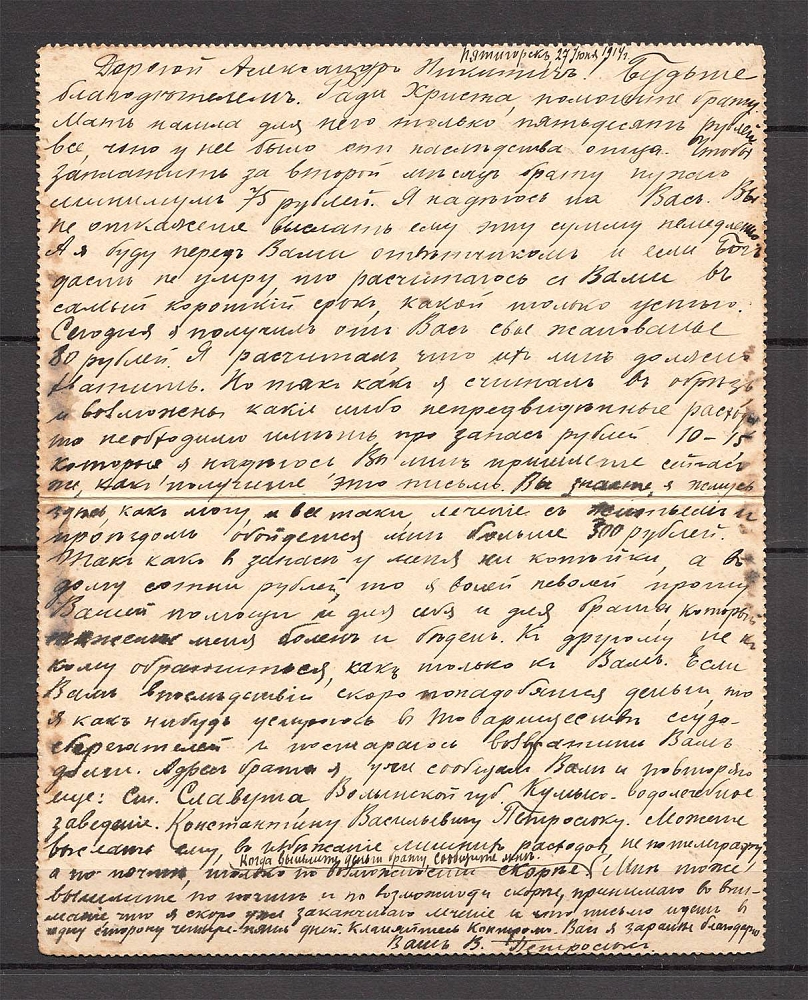 Пятигорскъ 27 Юня 1914 г.
Дорогой Александръ Никитичъ. Будьте
благодѣтелемъ. Ради Христа, помогите брату
Мать нашла для него только пятьдесятъ рублей
все что у нее было отъ наслѣдства отца. Чтобы
заплатить за второй мѣсяцъ брату нужно
минимумъ 75 рублей. Я надѣюсь на Васъ. Вы
не откажете выслать ему эту сумму немедленно
А я буду передъ Вами отвѣтчикомъ и если Богъ
дастъ не умру то расчитаюсь съ Вами въ
самый короткій срокъ, какой только успѣю.
Сегодня я получилъ отъ Васъ свое жалованье
80 рублей. Я расчиталъ что ихъ мнѣ должно
хватить. Но такъ какъ я считалъ въ обрѣзъ
и возможны какіе либо непредвидѣнные расходы
то необходимо имѣть про запасъ рублей 10-15
которые я надѣюсь Вы мнѣ пришлете сейчасъ
же, какъ получите это письмо. Вы знаете, я
здѣсь какъ могу и все таки леченіе съ и
проѣздомъ обойдется мнѣ больше 300 рублей.
Такъ какъ въ запасѣ у меня ни копѣйки, а въ
дому сотни рублей, то я волей неволей прошу
Вашей помощи и для себя и для брата который
меня боленъ и бѣденъ. Къ другому не къ
кому обратиться, какъ только къ Вамъ. Если
Вамъ впослѣдствіи скоро понадобятся деньги, то
я какъ нибудь устроюсь въ Товариществѣ ссудо-
сберегателей и постараюсь возвратить Вамъ
долги. Адресъ брата я уже сообщалъ Вамъ и повторяю
еще: Ст. Славута Волынской губ. Кумысо-водолечебное
заведеніе. Константину Васильевичу Петроську. Можете
выслать ему, въ избѣжаніе лишнихъ расходовъ, не по телеграфу
Когда вышлите деньги брату сообщите мнѣ.
а по почтѣ, только по возможности скорѣе. Мнѣ тоже
вышлите по почтѣ и по возможности скорѣе, принимаю во вни-
маніе что я скоро уже заканчиваю леченіе и что письмо идетъ въ
одну сторону четыре-пять дней. Кланяйтесь Контрол. Васъ я заранѣе благодарю
Вашъ В. Петроськъ.